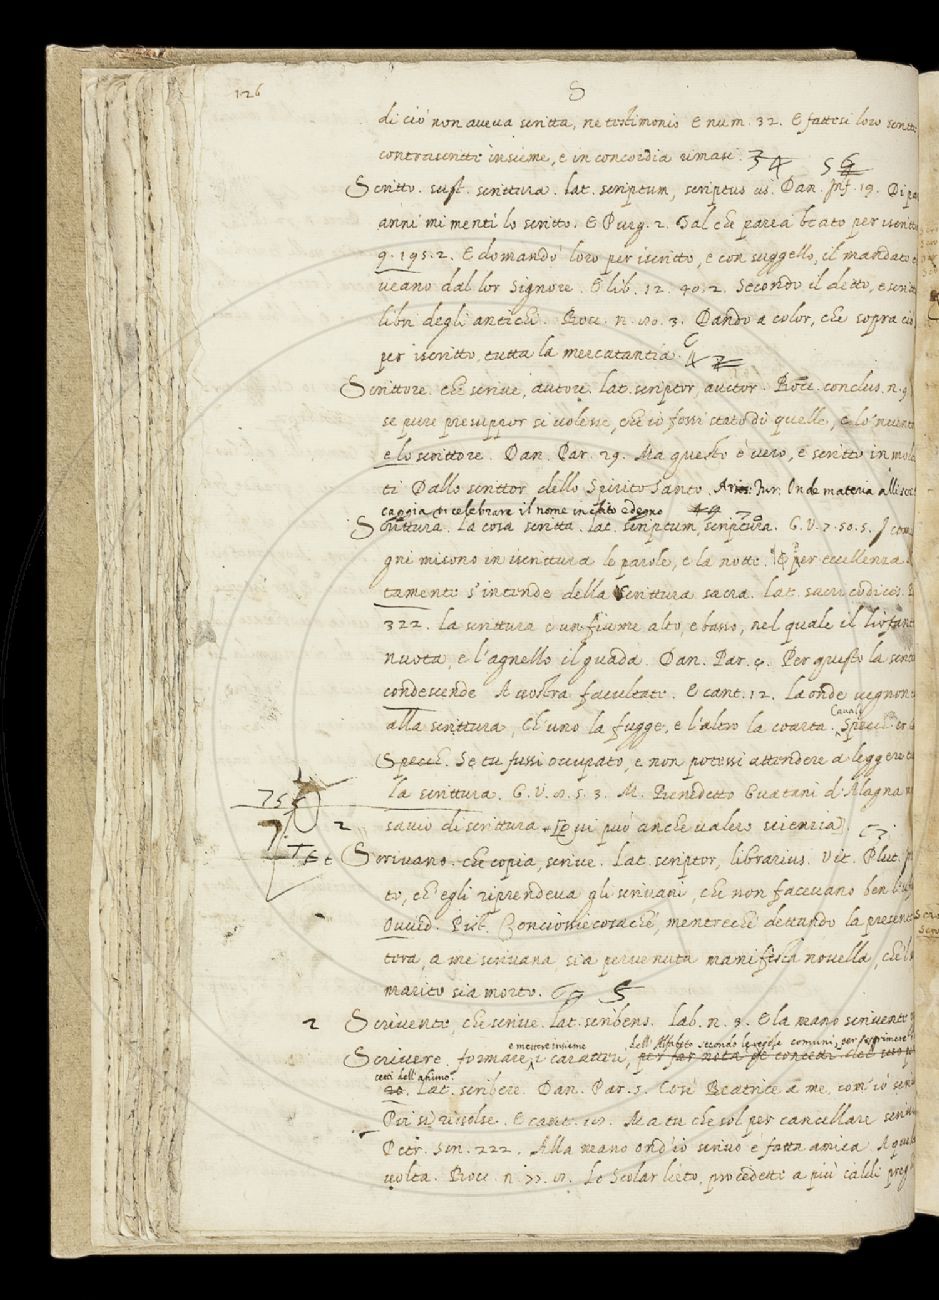 126
S
di ciò non aveva scritta, ne testimonio E num. 32. E fattesi loro scritte
contrascritte insieme, e in concordia rimasi. 34 56
Scritto. sust. scrittura. lat. scriptum, scriptus us. Dan. Inf. 19. Di par
anni mi menti lo scritto. E Purg. 2. Tal che parea beato per iscritto
9. 195. 2. E domandò loro per iscritto, e con suggello, il mandato
veano dal lor Signore. E lib. 12. 40. 2. Secondo il detto, e scri
libri degli antichi. Bocc. n. 80. 3. Dando a color, che sopra ciò
per iscritto, tutta la mercatantia.
Scrittore. che scrive, autore. lat. scriptor, auctor. Bocc. conclus. n. 9
se pure presuppor si volesse, che io fossi stato di quelle, e lo 'nvento
e lo scrittore. Dan. Par. 29. Ma questo è vero, e scritto in mol
ti Dallo scrittor dello Spirito Santo. Arios. Fur. Onde materia alli scr
caggia di celebrare il nome inclito e degno 49 70
Scrittura. la cosa scritta. lat. scriptum, scriptura. G. V. 7. 50. 5. I com
gni misono in iscrittura le parole, e la notte. E per eccellenza
tamente s'intende della Scrittura sacra. lat. sacri codices.
322. la scrittura è un fiume alto, e basso, nel quale il liofant
nuota, e l'agnello il guada. Dan. Par. 4. Per questo la scrit
condescende A vostra facultate. E cant. 12. Là onde vegnon
alla scrittura, Ch'uno la fugge, e l'altro la coarta. Cavalc
Specch. Se tu fussi occupato, e non potessi attendere a leggere
la scrittura. G. V. 8. 5. 3. M. Benedetto Guatani d'Alagna
2 savio di scrittura + [E qui può anche valere scienza]
Scrivano. che copia, scrive. lat. scriptor, librarius. Vit. Plut.
to, ch'egli riprendeva gli scrivani, che non facevano ben l'uf
Ovvid. Pist. Conciossiecosachè, mentrechè dettando la presente
tora, a me scrivana sia pervenuta manifesta novella, che 'l m
marito sia morto. 5
2 Scrivente, che scrive. lat. scribens. Lab. n. 3. E la mano scrivente
e mettere insieme dell'Alfabeto secondo le regole comuni, per esprimere
Scrivere, formare i caratteri, per far nota de concetti del suo
cetti dell'animo.
Lat. scribere. Dan. Par. 5. Così Beatrice a me, com'io scri
Poi si rivolse. E cant. 18. Ma tu che sol per cancellare scriv
Petr. Son. 222. Alla mano ond'io scrivo è fatta amica A que
volta. Bocc. n. 77. 8. Lo Scolar lieto, procedette a più caldi preg